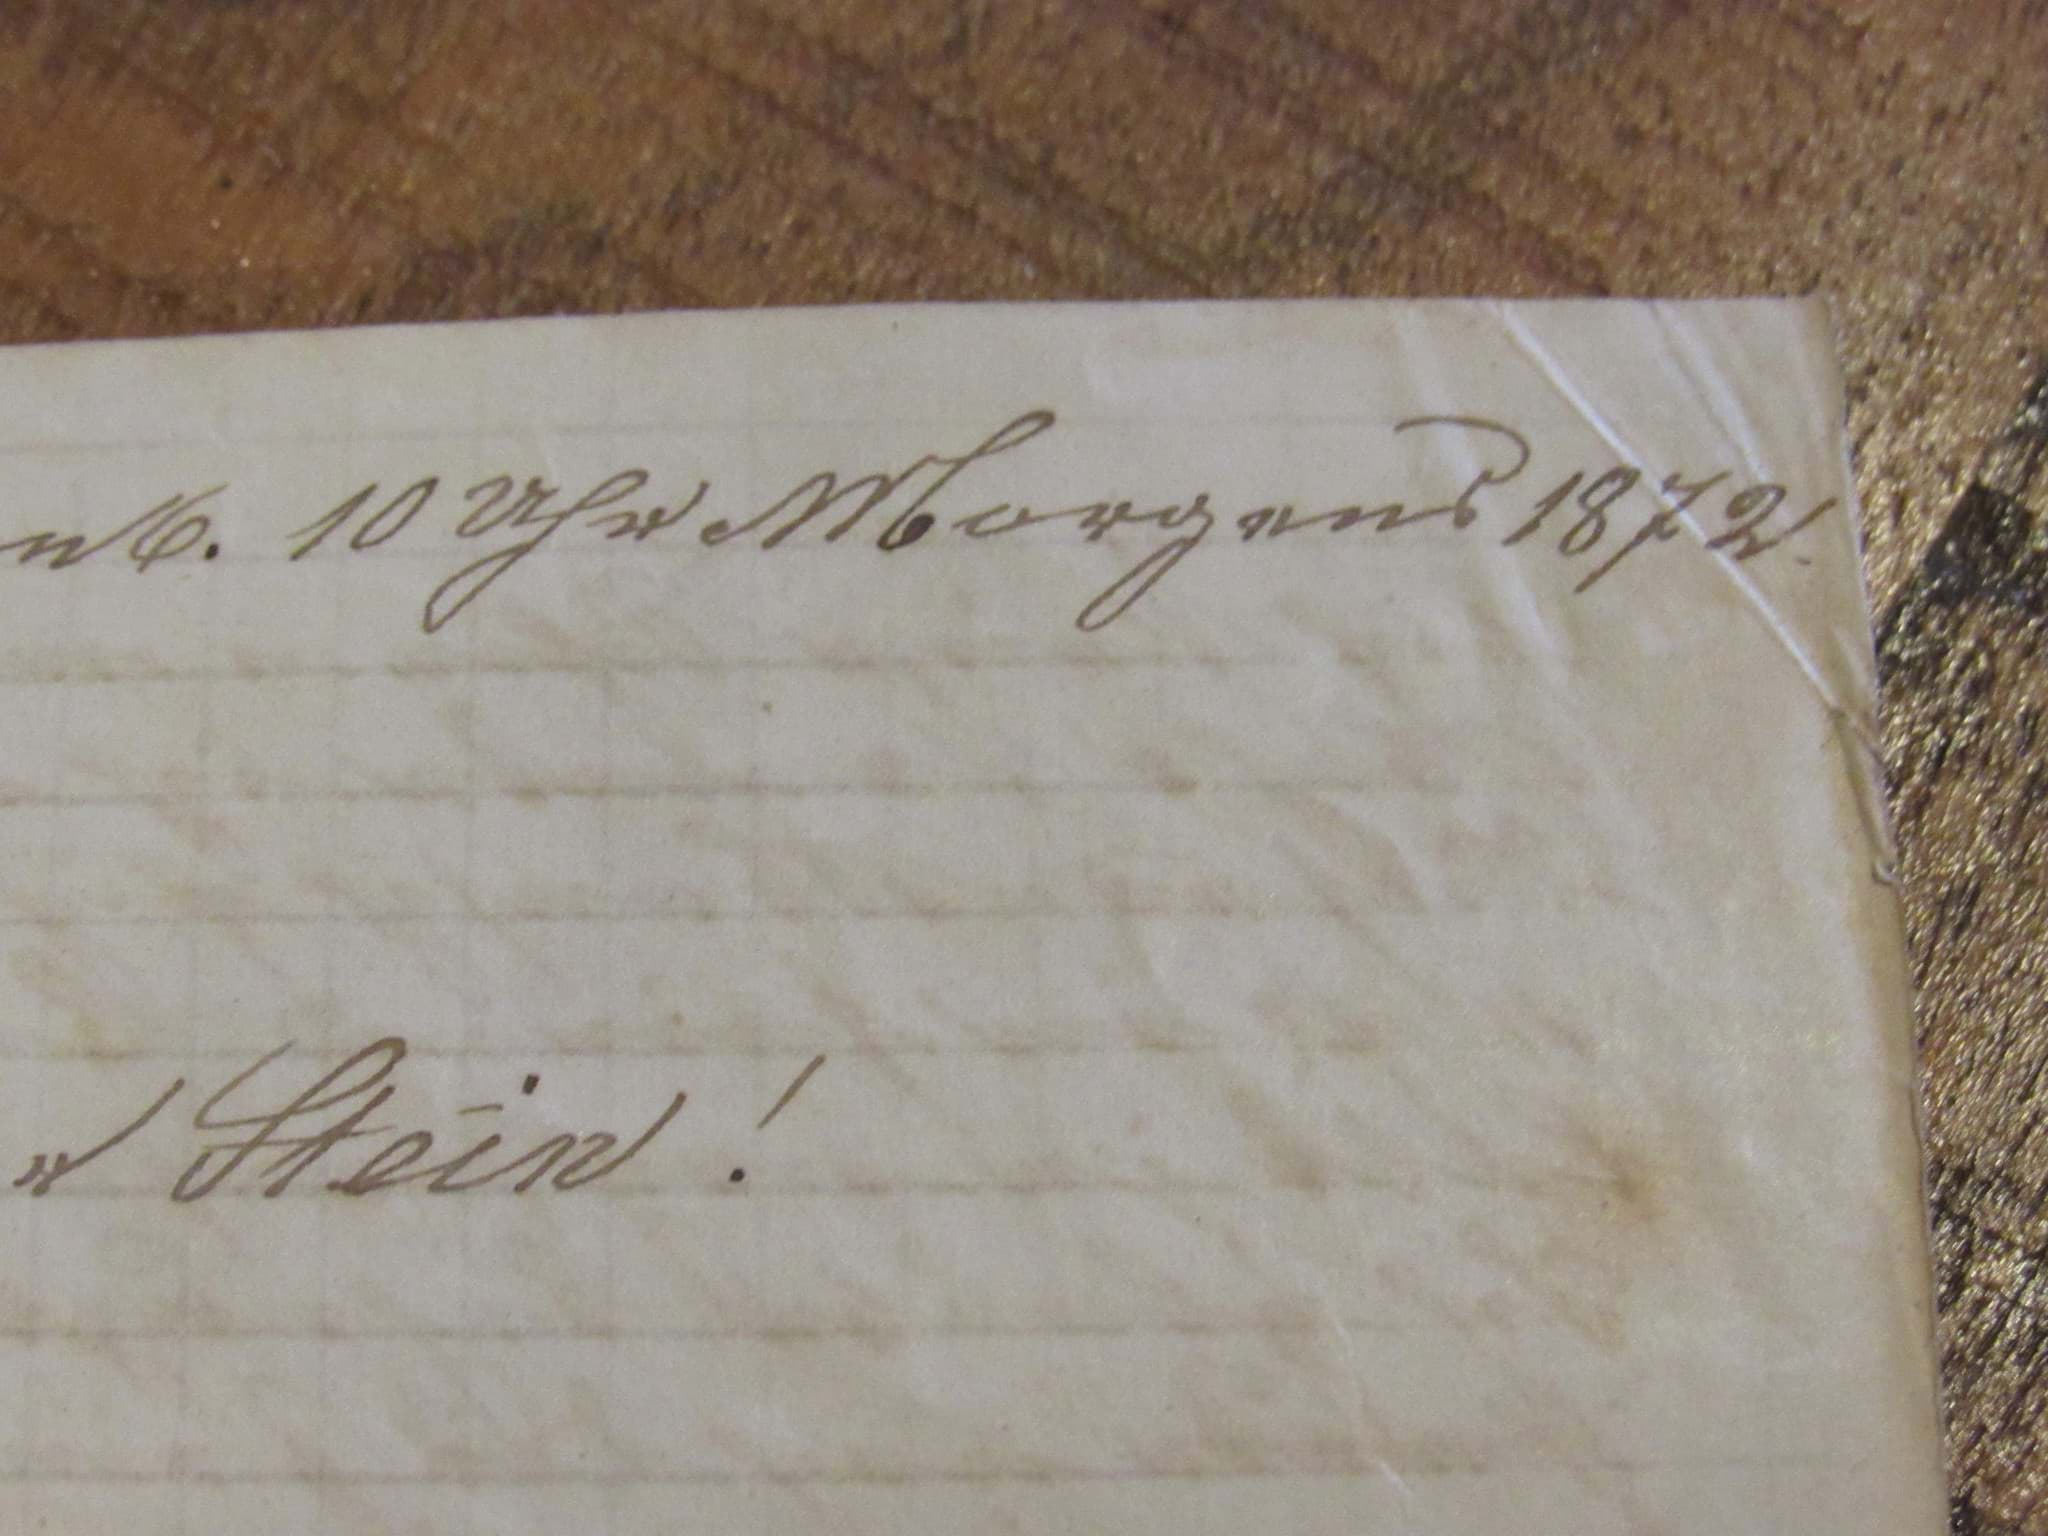 10 Uhr Morgens 1872.
Stein!